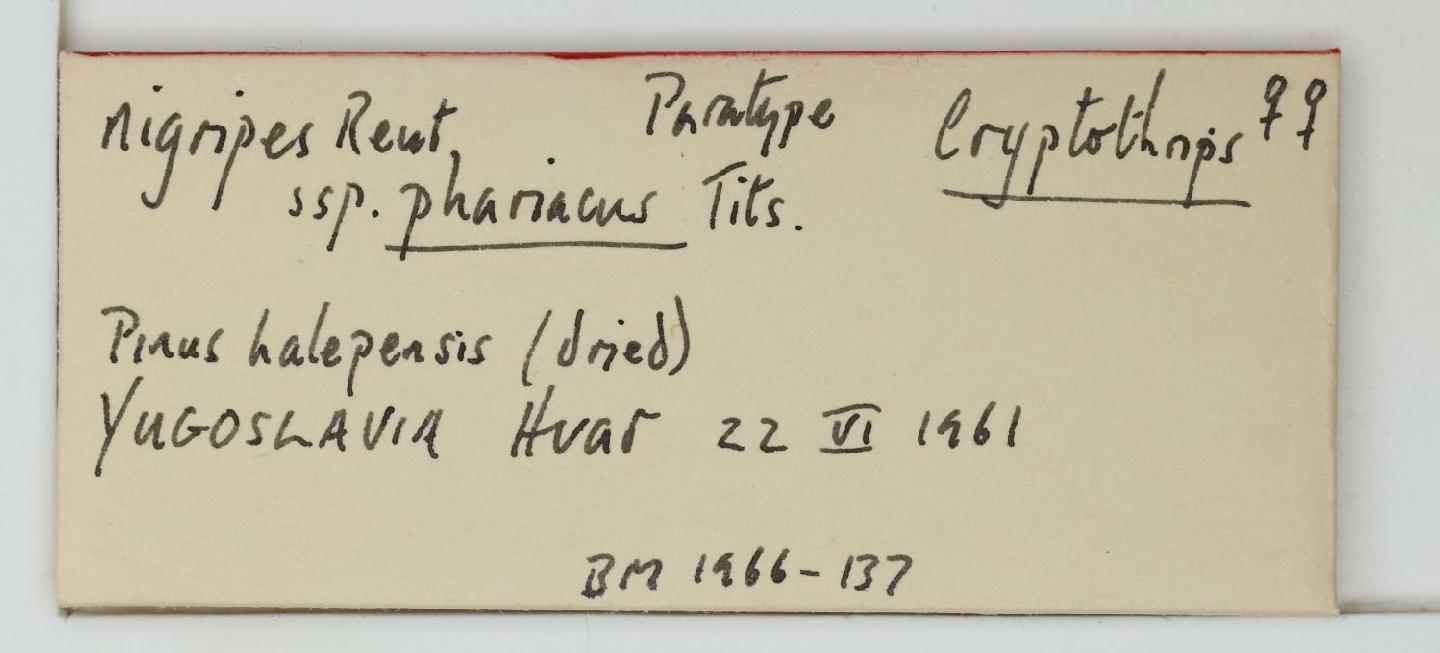 nigripes Reut. Paratype Cryptothrips ♀♀
ssp. phariacus Tits.
Pinus halepensis (dried)
YUGOSLAVIA Hvar 22 VI 1961
BM 1966-137